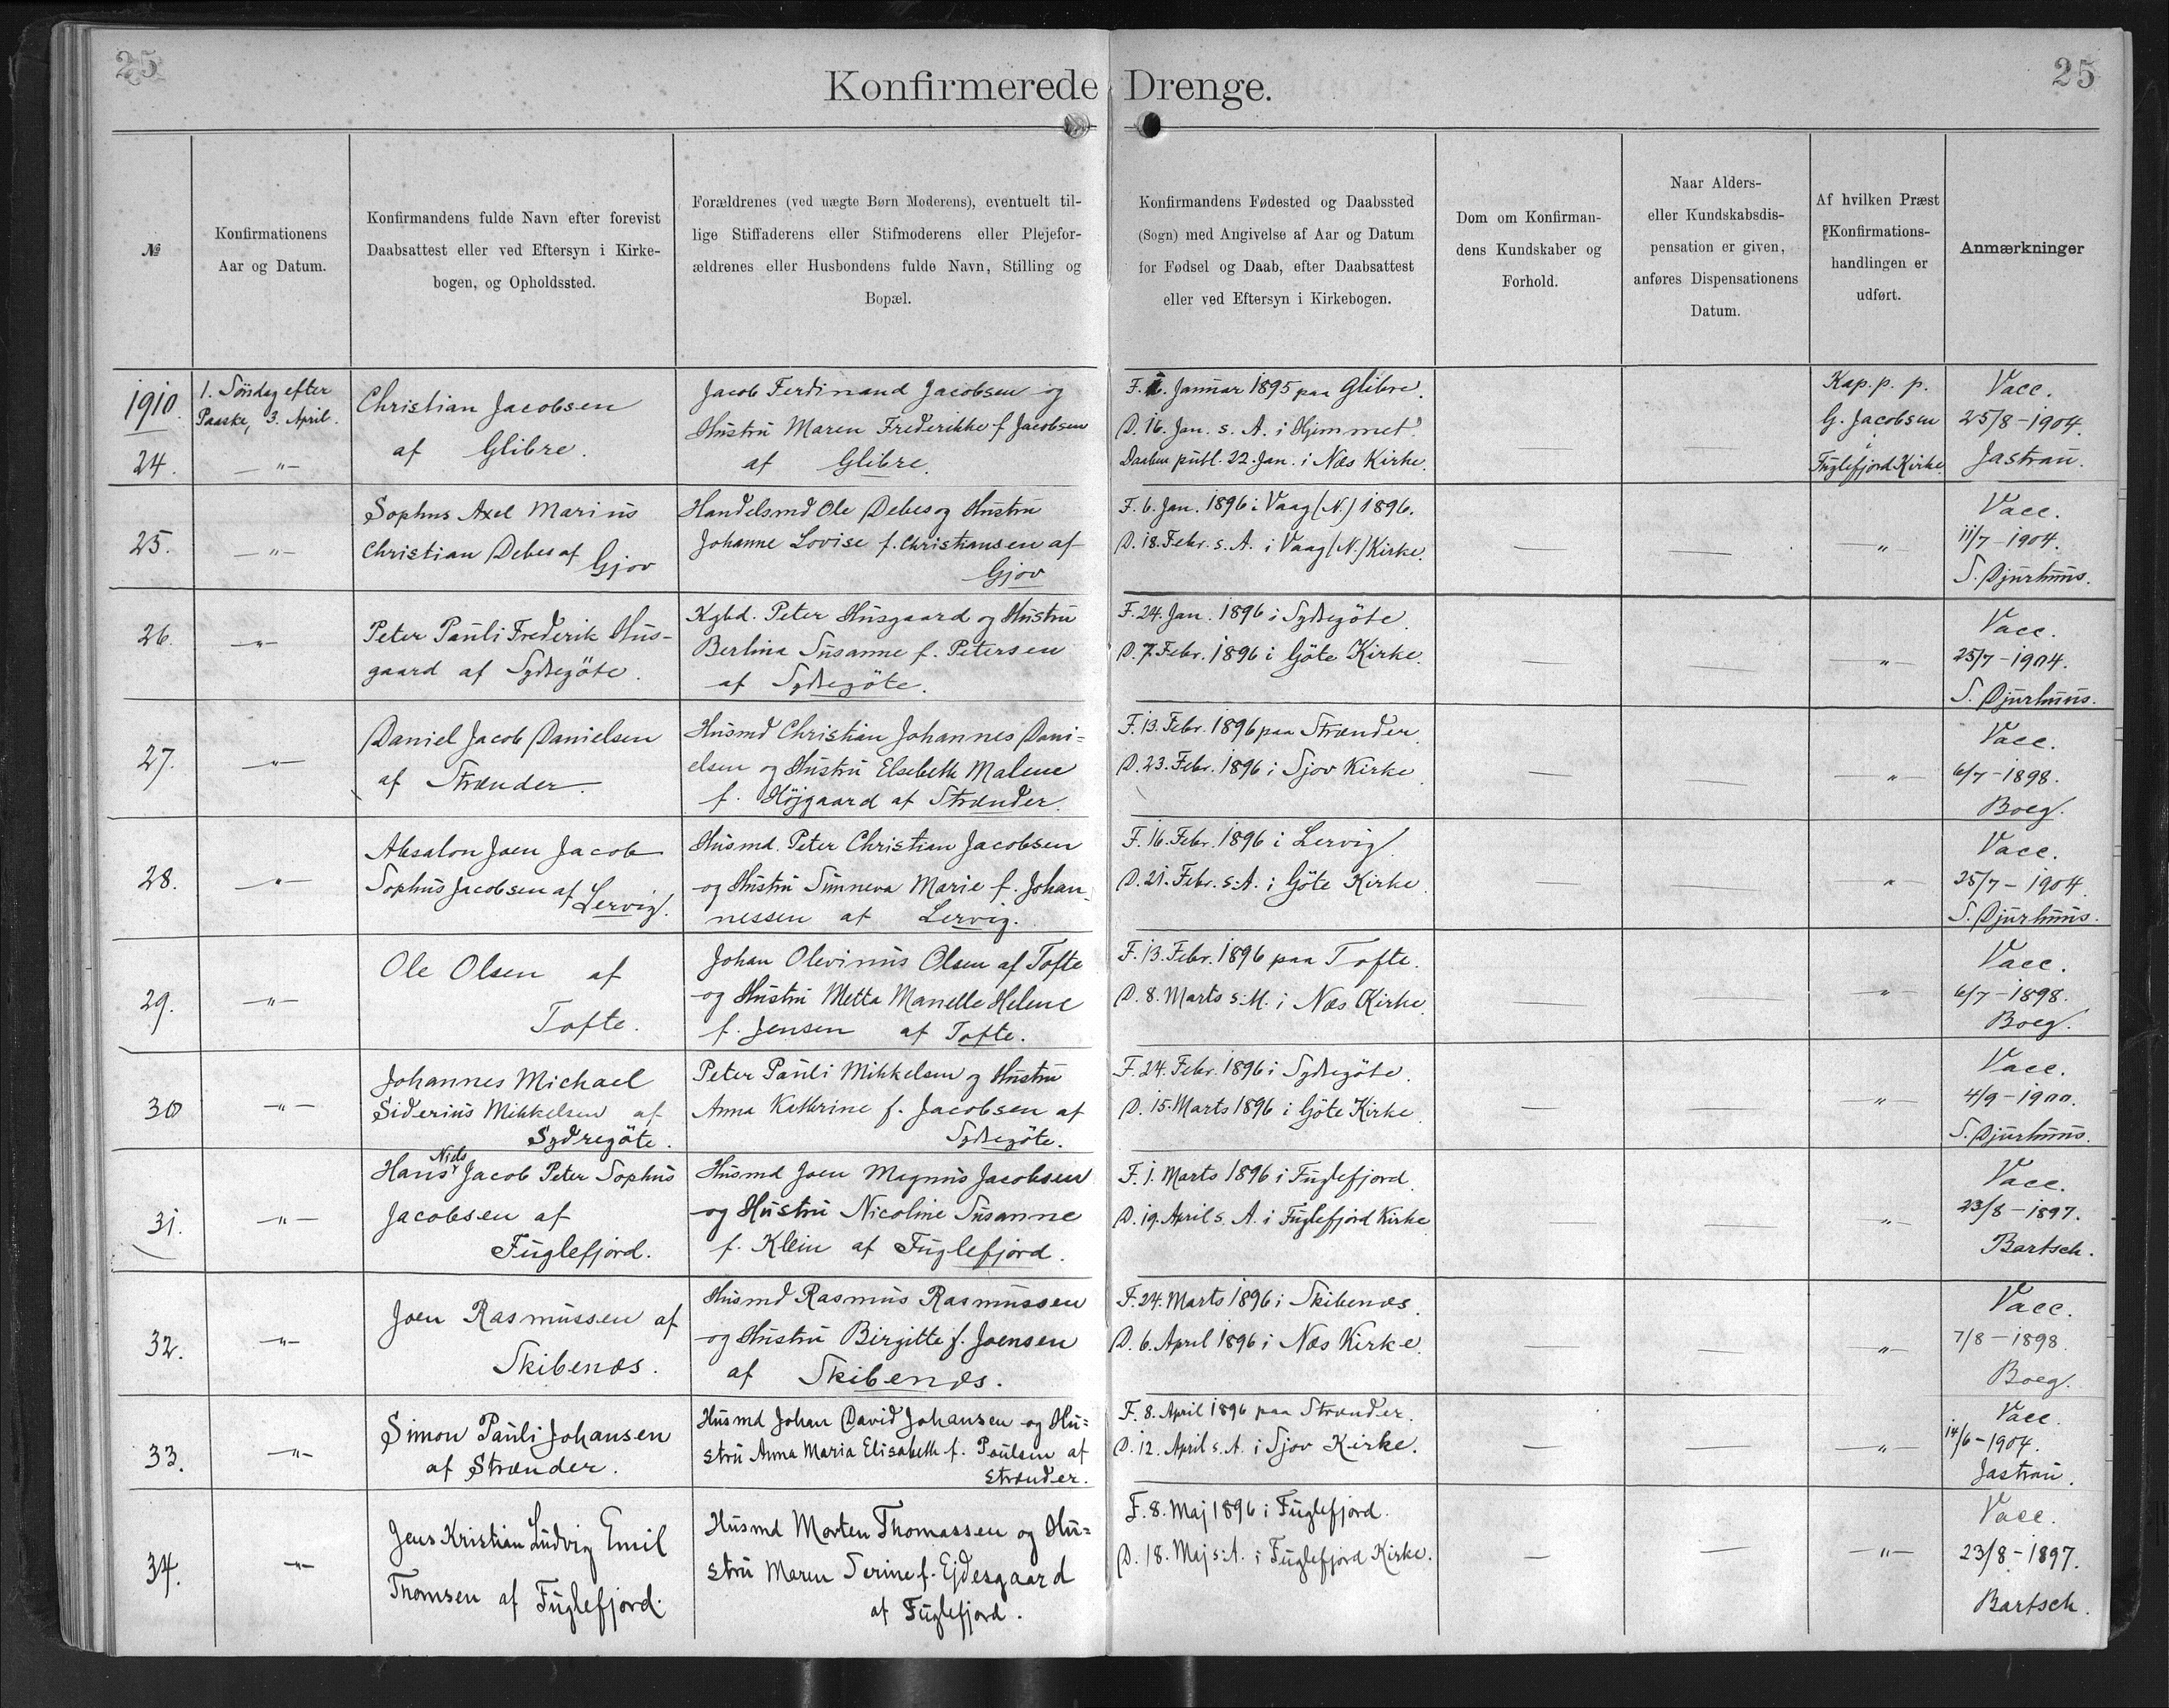 25
25
Konfirmerede Drenge.
№
Konfirmationens
Aar og Datum.
Konfirmandens fulde Navn efter forevist
Daabsattest eller ved Eftersyn i Kirke-
bogen, og Opholdssted.
Forældrenes (ved uægte Børn Moderens), eventuelt til-
lige Stiffaderens eller Stifmoderens eller Plejefor-
ældrenes eller Husbondens fulde Navn, Stilling og
Bopæl.
Konfirmandens Fødested og Daabssted
(Sogn) med Angivelse af Aar og Datum
for Fødsel og Daab, efter Daabsattest
eller ved Eftersyn i Kirkebogen.
Dom om Konfirman-
dens Kundskaber og
Forhold.
Naar Alders-
eller Kundskabsdis-
pensation er given,
anføres Dispensationens
Datum.
Af hvilken Præst
Konfirmations-
handlingen er
udført.
Anmærkninger
1910.
24.
1. Söndag efter
Paaske, 3. April.
—"—
Christian Jacobsen
af Glibre.
Jacob Ferdinand Jacobsen og
Hustru Maren Frederikke f. Jacobsen
af Glibre.
F. Januar 1895 paa Glibre.
D. 16. Jan. s. A. i Hjemmet.
Daaben publ. 22. Jan. i Næs Kirke.
—
—
Kap. p. p.
G. Jacobsen
i
Fuglefjord Kirke
Vacc.
25/8 – 1904.
Jastrau.
25.
—"—
Sophus Axel Marius
Christian Debes af
Gjov
Handelsmd Ole Debes og Hustru
Johanne Lovise f. Christiansen af
Gjov
F. 6. Jan. 1896 i Vaag (N.) 1896.
D. 18. Febr. s. A. i Vaag (N.) Kirke.
—
—
—"—
Vacc.
11/7 – 1904.
S. Djurhuus.
26.
—"—
Peter Pauli Frederik Hus-
gaard af Sydregöte.
Kgbd. Peter Husgaard og Hustru
Berlina Susanne f. Petersen
af Sydregöte.
F. 24. Jan. 1896 i Sydregöte.
D. 7. Febr. 1896 i Göte Kirke.
—
—
—"—
Vacc.
25/7 – 1904.
S. Djurhuus.
27.
—"—
Daniel Jacob Danielsen
af Strænder.
Husmd Christian Johannes Dani=
elsen og Hustru Elsebeth Malene
f. Højgaard af Strænder.
F. 13. Febr. 1896 paa Strænder.
D. 23. Febr. 1896 i Sjov Kirke.
—
—
—"—
Vacc.
6/7 – 1898.
Boeg.
28.
—"—
Absalon Joen Jacob
Sophus Jacobsen af
Lervig.
Husmd. Peter Christian Jacobsen
og Hustru Sunneva Marie f. Johan-
nessen af Lervig.
F. 16. Febr. 1896 i Lervig.
D. 21. Febr. s. A. i Göte Kirke.
—
—
—"—
Vacc.
25/7 – 1904.
S. Djurhuus.
29.
—"—
Ole Olsen af
Tofte.
Johan Olevinus Olsen af Tofte
og Hustru Metta Manelle Helene
f. Jensen af Tofte.
F. 13. Febr. 1896 paa Tofte.
D. 8. Marts s. A. i Næs Kirke.
—
—
—"—
Vacc.
6/7 – 1898.
Boeg.
30
—"—
Johannes Michael
Siderius Mikkelsen af
Sydregöte.
Peter Pauli Mikkelsen og Hustru
Anna Kathrine f. Jacobsen af
Sydregöte.
F. 24. Febr. 1896 i Sydregöte.
D. 15. Marts 1896 i Göte Kirke
—
—
—"—
Vacc.
4/9 – 1900.
S. Djurhuus.
31.
—"—
Niels
Hans Jacob Peter Sophus
Jacobsen af
Fuglefjord.
Husmd Joen Magnus Jacobsen
og Hustru Nicoline Susanne
f. Klein af Fuglefjord.
F. 1. Marts 1896 i Fuglefjord.
D. 19. April s. A. i Fuglefjord Kirke
—
—
—"—
Vacc.
23/8 – 1897.
Bartsch.
32.
—"—
Joen Rasmussen af
Skibenæs.
Husmd Rasmus Rasmussen
og Hustru Birgitte f. Joensen
af Skibenæs.
F. 24. Marts 1896 i Skibenæs.
D. 6. April 1896 i Næs Kirke.
—
—
—"—
Vacc.
7/8 – 1898
Boeg.
33.
—"—
Simon Pauli Johansen
af Strænder.
Husmd Johan David Johansen og Hu=
stru Anna Maria Elisabeth f. Poulsen af
Strænder.
F. 8. April 1896 paa Strænder.
D. 12. April s. A. i Sjov Kirke.
—
—
—"—
Vacc.
14/6 – 1904.
Jastrau.
34.
—"—
Jens Kristian Ludvig Emil
Thomsen af Fuglefjord.
Husmd Morten Thomassen og Hu=
stru Maren Serine f. Ejdesgaard
af Fuglefjord.
F. 8. Maj 1896 i Fuglefjord.
D. 18. Maj s. A. i Fuglefjord Kirke.
—
—
—"—
Vacc.
23/8 – 1897.
Bartsch.